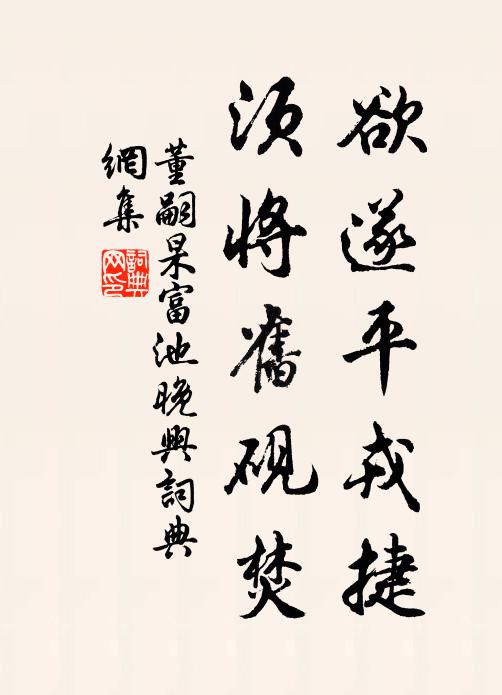 欲遂平戎捷
須將舊硯焚
董嗣杲富池晚興詞典
網集
詞典
网印